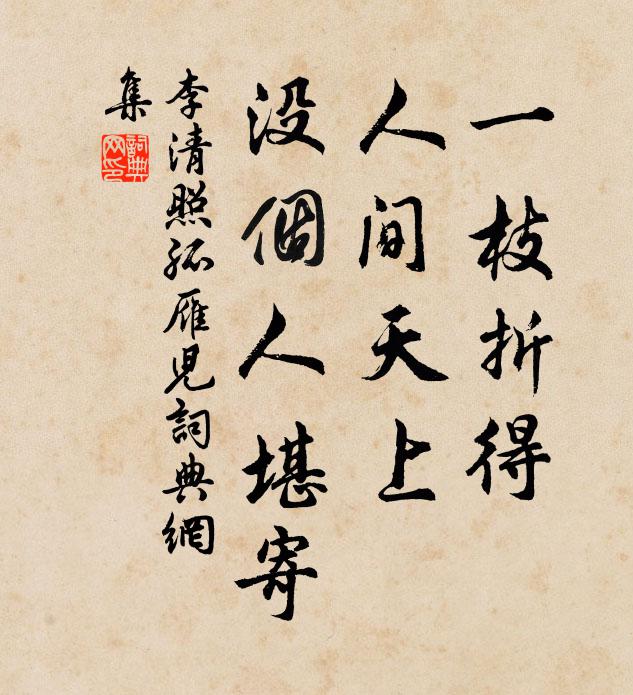 一枝折得
人間天上
没個人堪寄
李清照孤雁兒詞典網
集
詞典
网印